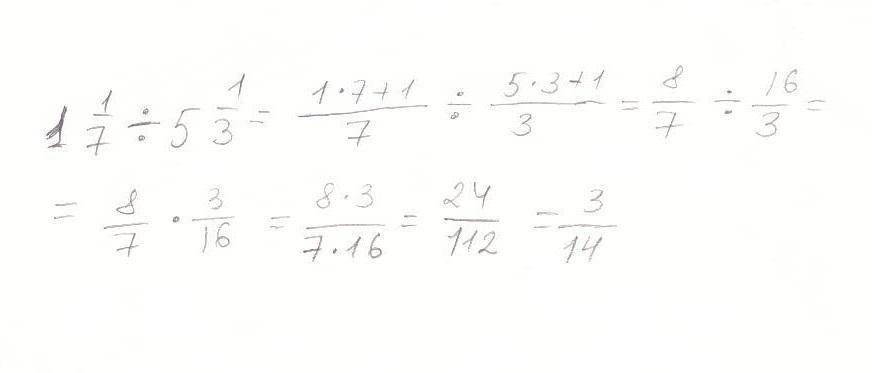 1 1/7 ÷ 5 1/3 = (1·7+1)/7 ÷ (5·3+1)/3 = 8/7 ÷ 16/3 =
= 8/7 · 3/16 = (8·3)/(7·16) = 24/112 = 3/14